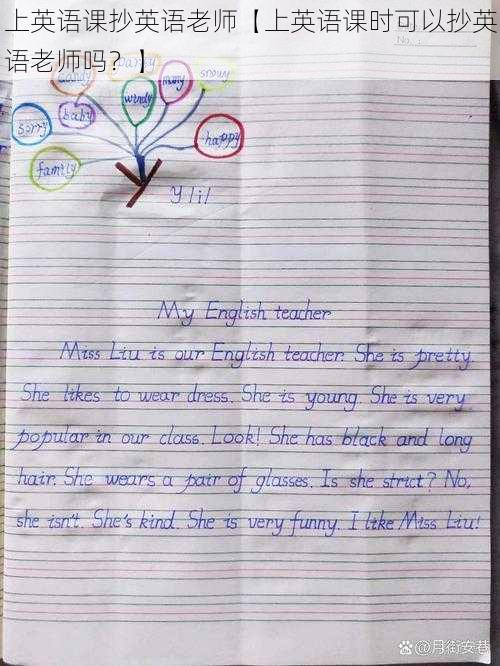 上英语课抄英语老师【上英语课时可以抄英
语老师吗？】
No.:
candy
party
many
snowy
windy
sorry
baby
happy
family
Y /i/
My English teacher
Miss Liu is our English teacher. She is pretty.
She likes to wear dress. She is young. She is very
popular in our class. Look! She has black and long
hair. She wears a pair of glasses. Is she strict? No,
she isn't. She's kind. She is very funny. I like Miss Liu!
@月街安巷